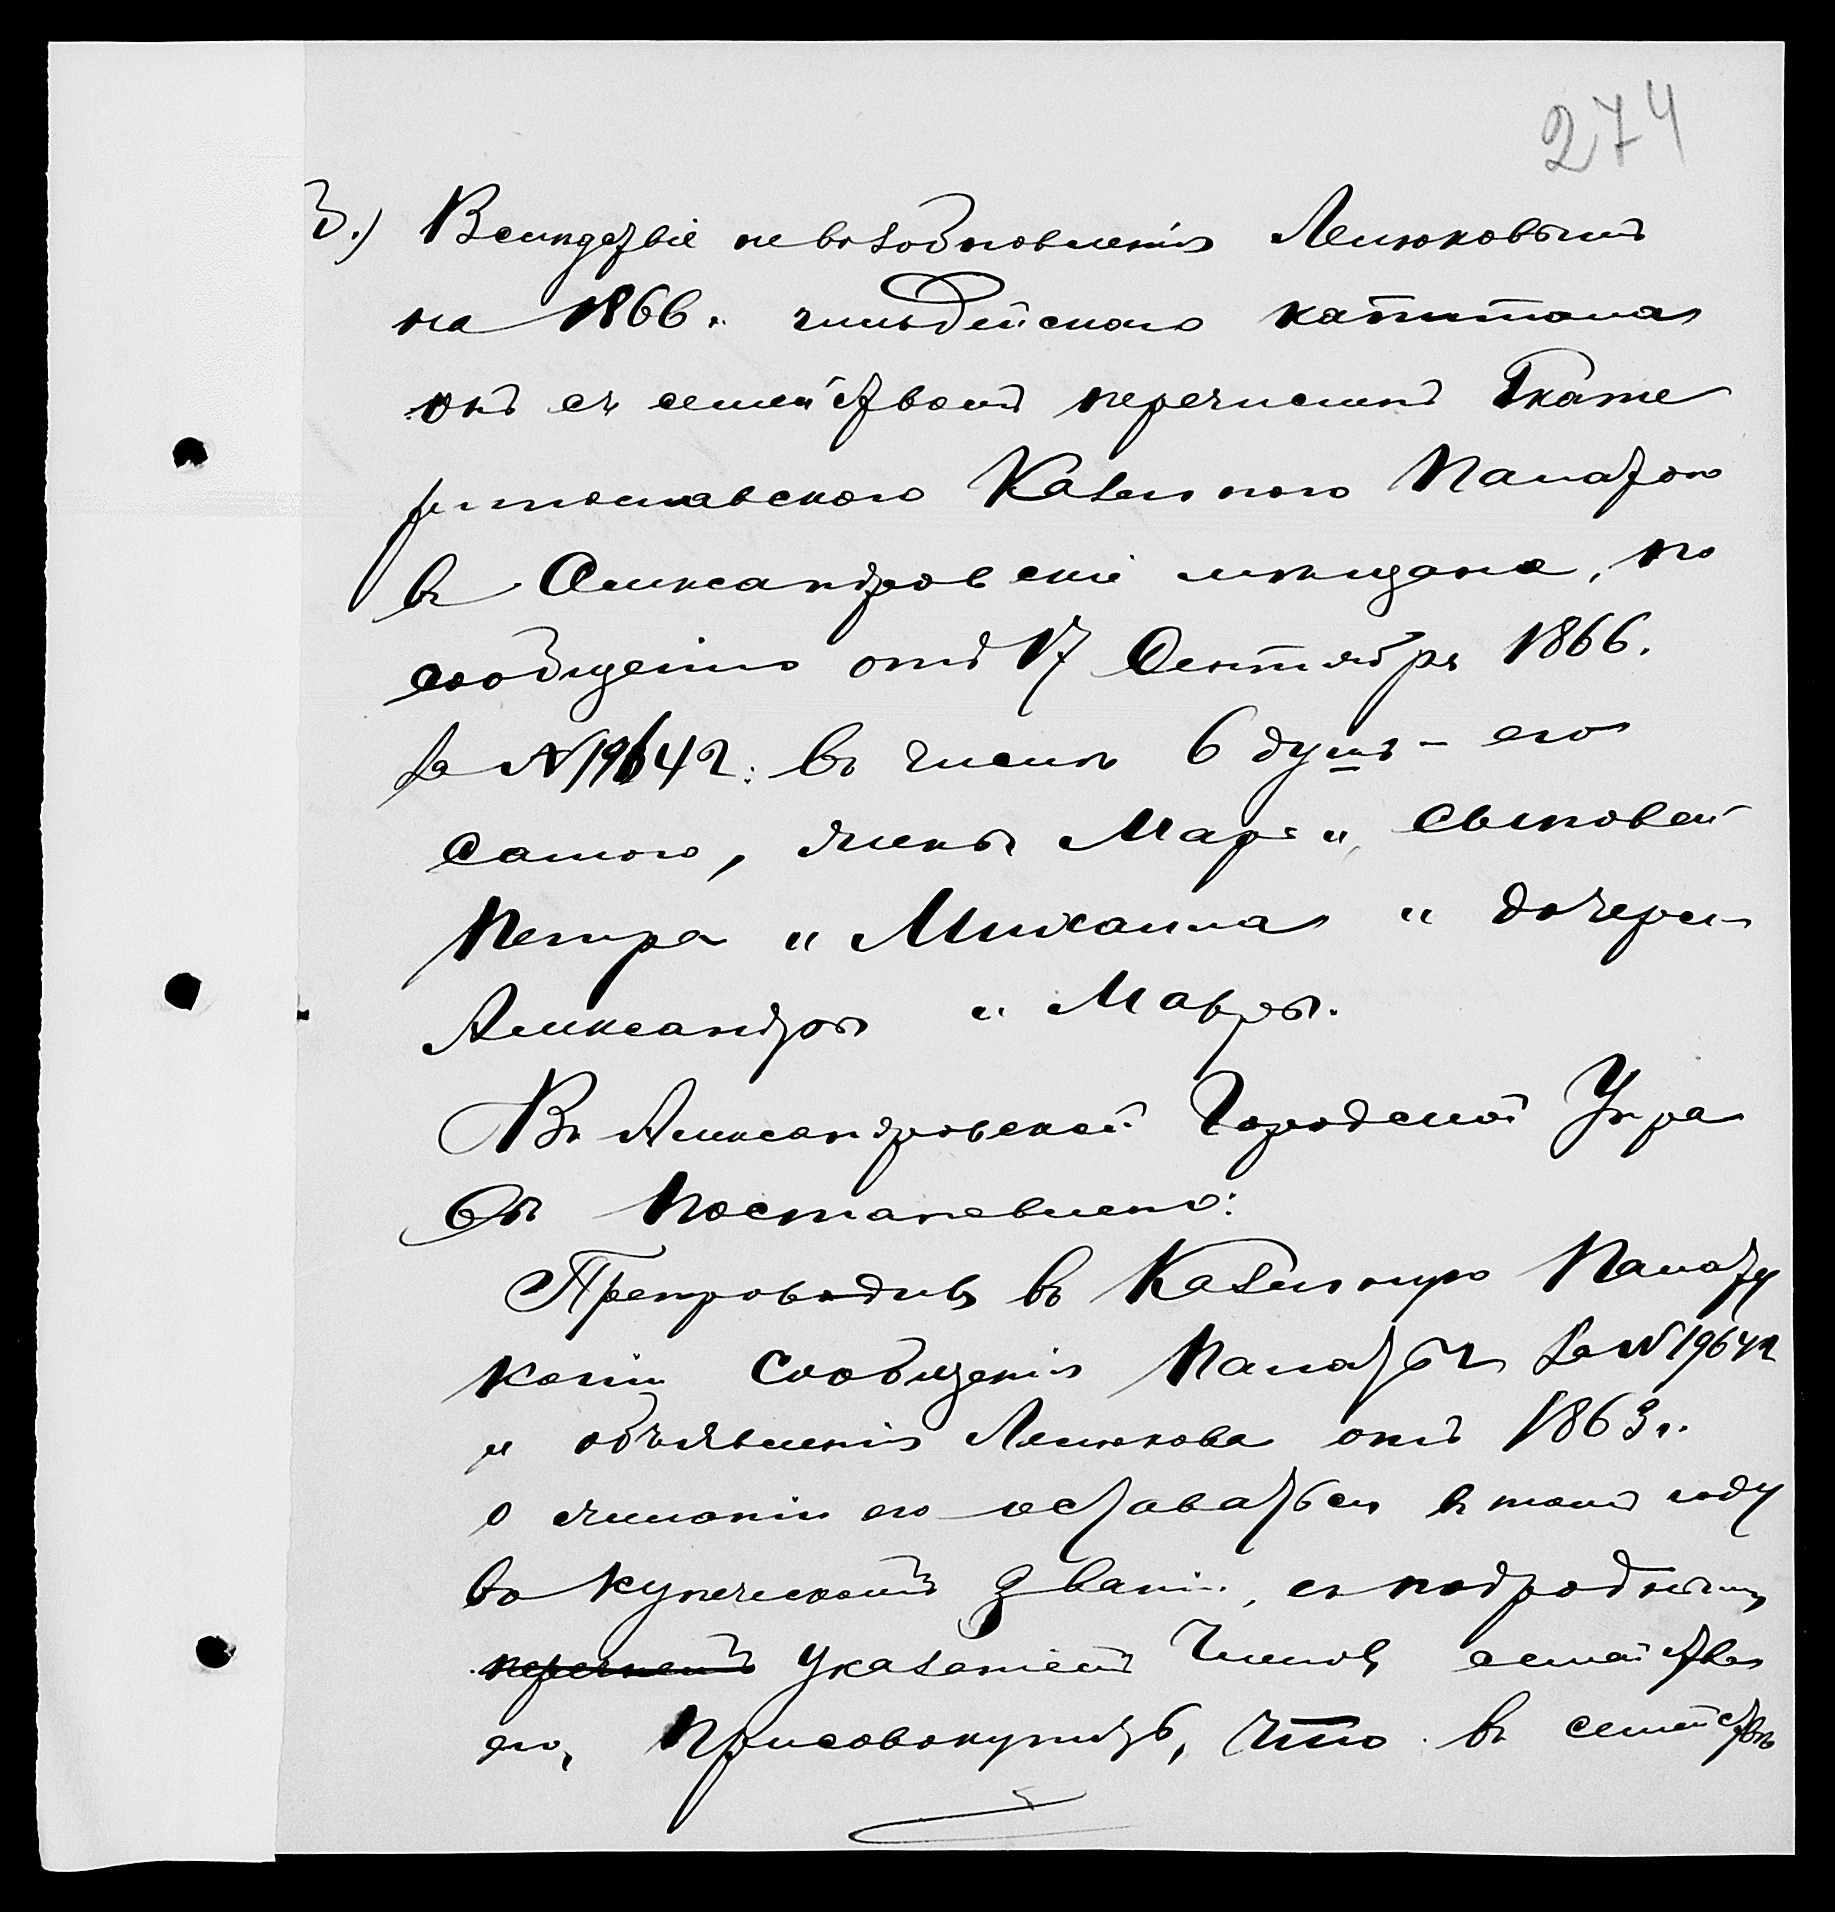 274
3.) Вслидствіе невозобновленія Ленюковымъ
на 1866 г. гильдейскаго капитала
онъ съ семействомъ перечисленъ Екате
ринославскою Казенною Палатою
въ Александровскіе мѣщане, по
сообщенію отъ 17 Сентября 1866.
за № 19642: въ числѣ 6 душъ – его
самого, жены Маріи, сыновей
Петра и Михаила и дочерей
Александры и Мавры.
Въ Александровской Городской Упра
вѣ постановлено:
Препроводивъ въ Казенную Палату
копіи сообщенія Палаты за № 19642
и объявленія Ленюкова отъ 1863 г.
о желаніи его оставаться въ томъ году
въ купеческомъ званіи, съ подроднымъ
перечнемъ указаніемъ членовъ семейства
его, присовокупить, что въ семействѣ